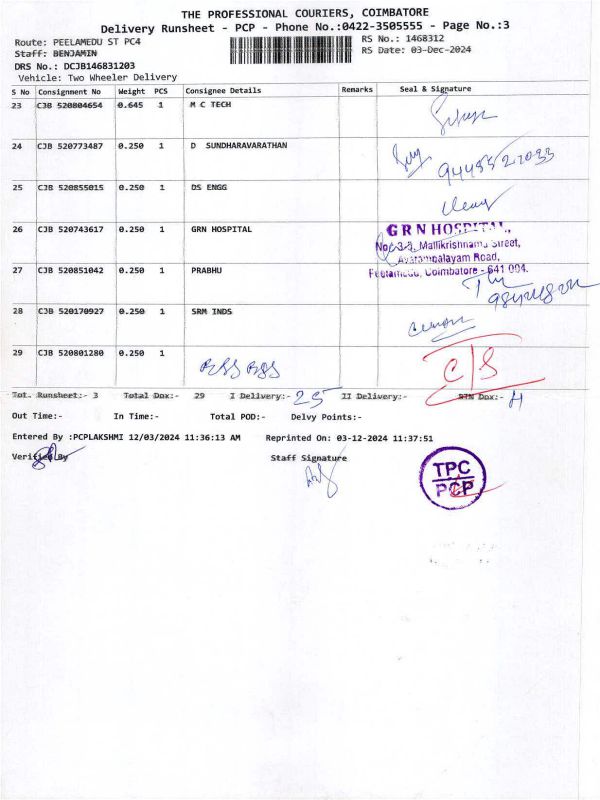 THE PROFESSIONAL COURIERS, COIMBATORE
Delivery Runsheet - PCP - Phone No.:0422-3505555 - Page No.:3
Route: PEELAMEDU ST PC4 RS No.: 1468312
Staff: BENJAMIN RS Date: 03-Dec-2024
DRS No.: DCJB146831203
Vehicle: Two Wheeler Delivery
S No Consignment No Weight PCS Consignee Details Remarks Seal & Signature
23 CJB 520804654 0.645 1 M C TECH
24 CJB 520773487 0.250 1 D SUNDHARAVARATHAN
25 CJB 520855015 0.250 1 DS ENGG
26 CJB 520743617 0.250 1 GRN HOSPITAL
G R N HOSPITAL,
No. 3-3, Mallikrishnamu Street,
Avarampalayam Road,
Peelamedu, Coimbatore - 641 004.
27 CJB 520851042 0.250 1 PRABHU
28 CJB 520170927 0.250 1 SRM INDS
29 CJB 520801280 0.250 1 C/S
Tot. Runsheet:- 3 Total Dox:- 29 I Delivery:- 25 II Delivery:- RTN Dox:- 4
Out Time:- In Time:- Total POD:- Delvy Points:-
Entered By :PCPLAKSHMI 12/03/2024 11:36:13 AM Reprinted On: 03-12-2024 11:37:51
Verified By Staff Signature
TPC
PCP